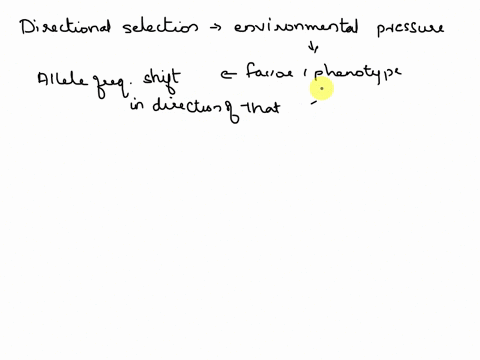 Directional selection → environmental pressure
↓
Allele freq. shift ← favor 1 phenotype
in direction of that